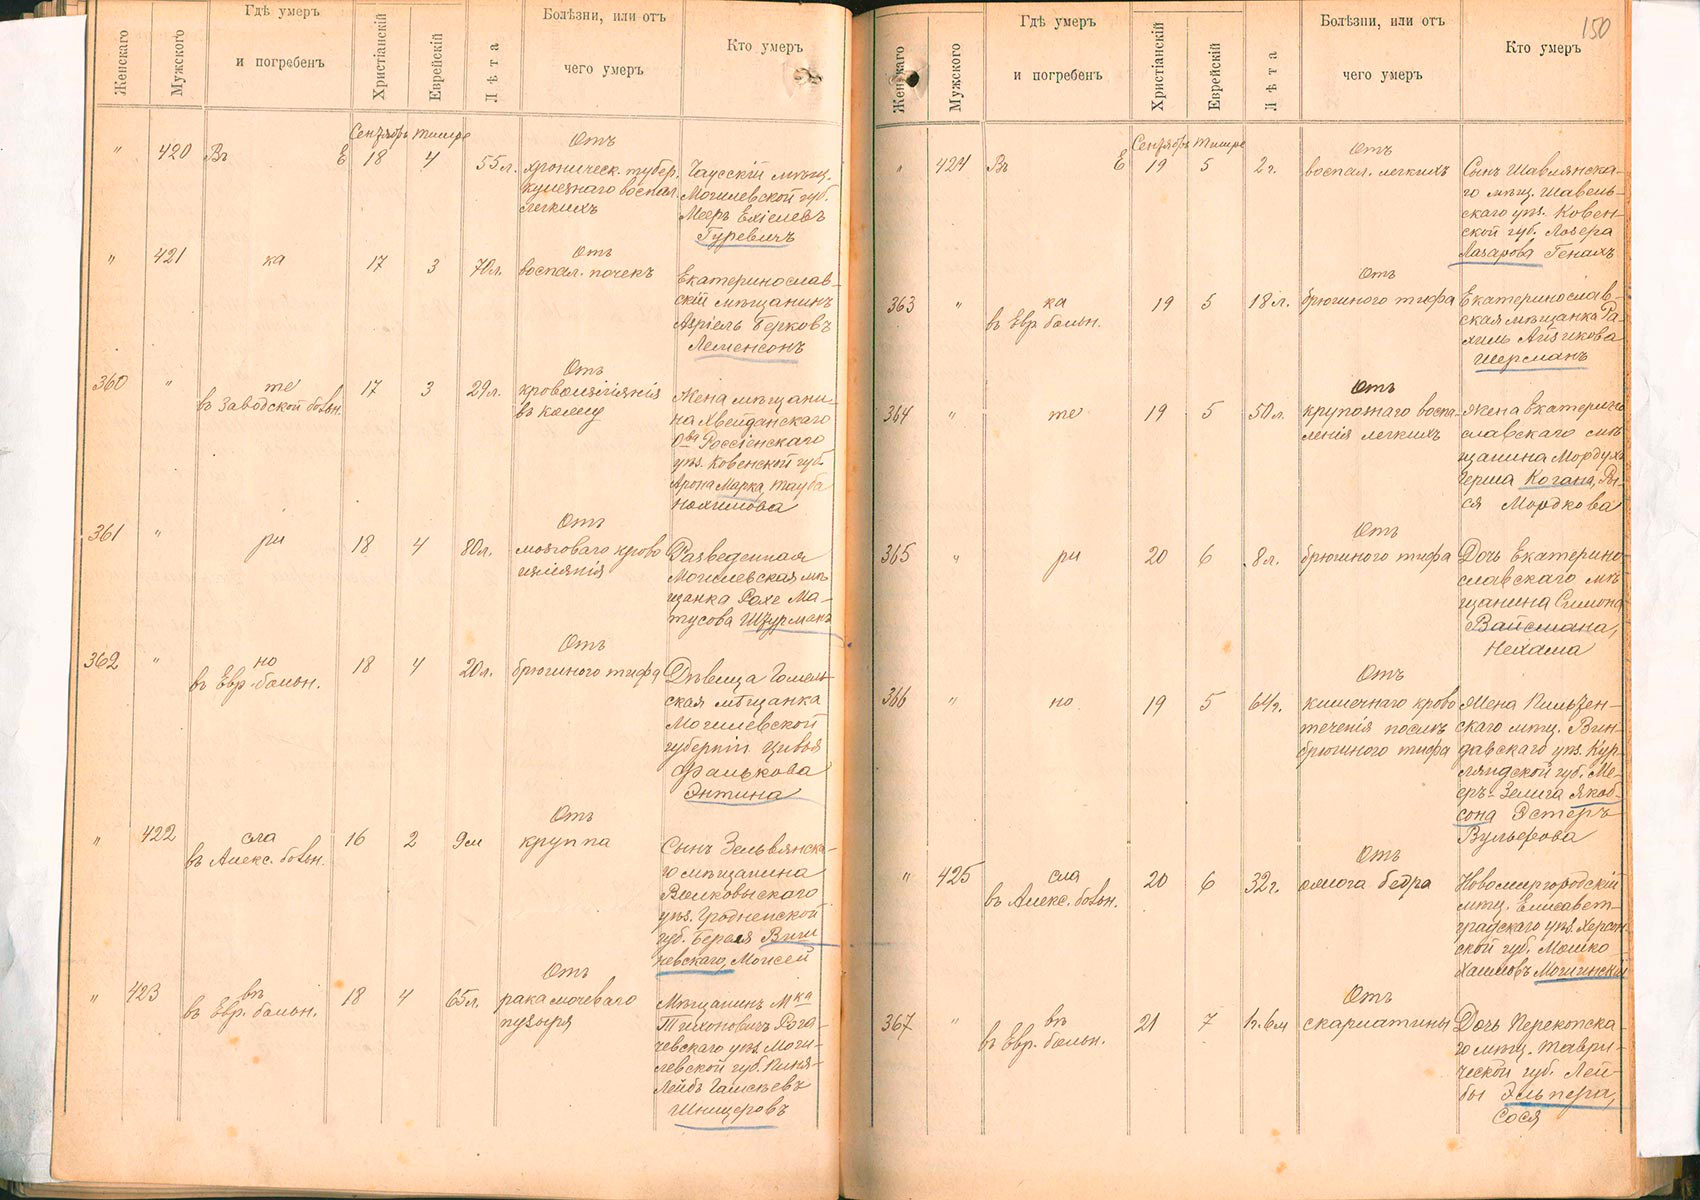 Женскаго
Мужского
Гдѣ умеръ
и погребенъ
Христіанскій
Еврейскій
Лѣта
Болѣзни, или отъ
чего умеръ
Кто умеръ
Сентябрь Тишре
" 420 Въ Е 18 4 55 л.
Отъ
хроническ. тубер.
кулезнаго воспал.
легкихъ
Чаусскій мѣщ.
Могилевской губ.
Мееръ Ехіелевъ
Гуревичъ
" 421 ка 17 3 70 л.
Отъ
воспал. почекъ
Екатеринослав-
скій мѣщанинъ
Азріель Берковъ
Леменсонъ
360 " те 17 3 29 л.
въ Заводской больн.
Отъ
кровоизліянія
въ
Жена мѣщани-
на Хвейданскаго
О-ва Россіенскаго
уѣз. Ковенской губ.
Арона Марка, Тауба
Нохимова
361 " ри 18 4 80 л.
Отъ
мозговаго крово
изліянія
Разведенная
Могилевская мѣ
щанка Рохе Ма-
тусова Штурманъ
362 " но 18 4 20 л.
въ Евр. больн.
Отъ
брюшного тифа
Дѣвица Гомель-
ская мѣщанка
Могилевской
губерніи Цивья
Фалькова
Энтина
" 422 сла 16 2 9 м
въ Алекс. больн.
Отъ
круппа
Сынъ Зельвянска-
го мѣщанина
Волковыскаго
уѣз. Гродненской
губ. Берея Виш
невскаго, Моисей
" 423 въ 18 4 65 л.
въ Евр. больн.
Отъ
рака мочеваго
пузыря
Мѣщанинъ М-ка
Тихоновичъ Рога-
чевскаго уѣз. Моги-
левской губ.
Лейбъ
Шницеровъ
150
Женскаго
Мужского
Гдѣ умеръ
и погребенъ
Христіанскій
Еврейскій
Лѣта
Болѣзни, или отъ
чего умеръ
Кто умеръ
Сентябрь Тишре
" 424 Въ Е 19 5 2 г.
Отъ
воспал. легкихъ
Сынъ Шавлянска-
го мѣщ. Шавель-
скаго уѣз. Ковен-
ской губ. Лозера
Лазарова Генахъ
363 " ка 19 5 18 л.
въ Евр. больн.
Отъ
брюшного тифа
Екатеринослав-
ская мѣщанка Ра-
хиль Айзикова
Шерманъ
364 " те 19 5 50 л.
Отъ
крупознаго воспа-
ленія легкихъ
Жена Екатерино
славскаго мѣ
щанина Мордухъ
Герша Когана, Ры-
ся Мордкова
365 " ри 20 6 8 л.
Отъ
брюшного тифа
Дочь Екатерино-
славскаго мѣ
щанина Симона
Вайсмана,
Нехама
366 " но 19 5 64 г.
Отъ
кишечнаго крово
теченія послѣ
брюшного тифа
Жена Пильтен-
скаго мѣщ. Вин-
давскаго уѣз. Кур-
ляндской губ. Ме-
еръ-Зелига Якоб-
сона Эстеръ
Вульфова
" 425 сла 20 6 32 г.
въ Алекс. больн.
Отъ
ожога бедра
Новомиргородскій
мѣщ. Елисавет-
градскаго уѣз. Херсон-
ской губ. Мошко
Хаимовъ Могилянскій
367 " въ 21 7 1 г. 6 м
въ Евр. больн.
Отъ
скарлатины
Дочь Перекопска-
го мѣщ. Таври-
ческой губ. Лей-
бы Эльперна,
Сося